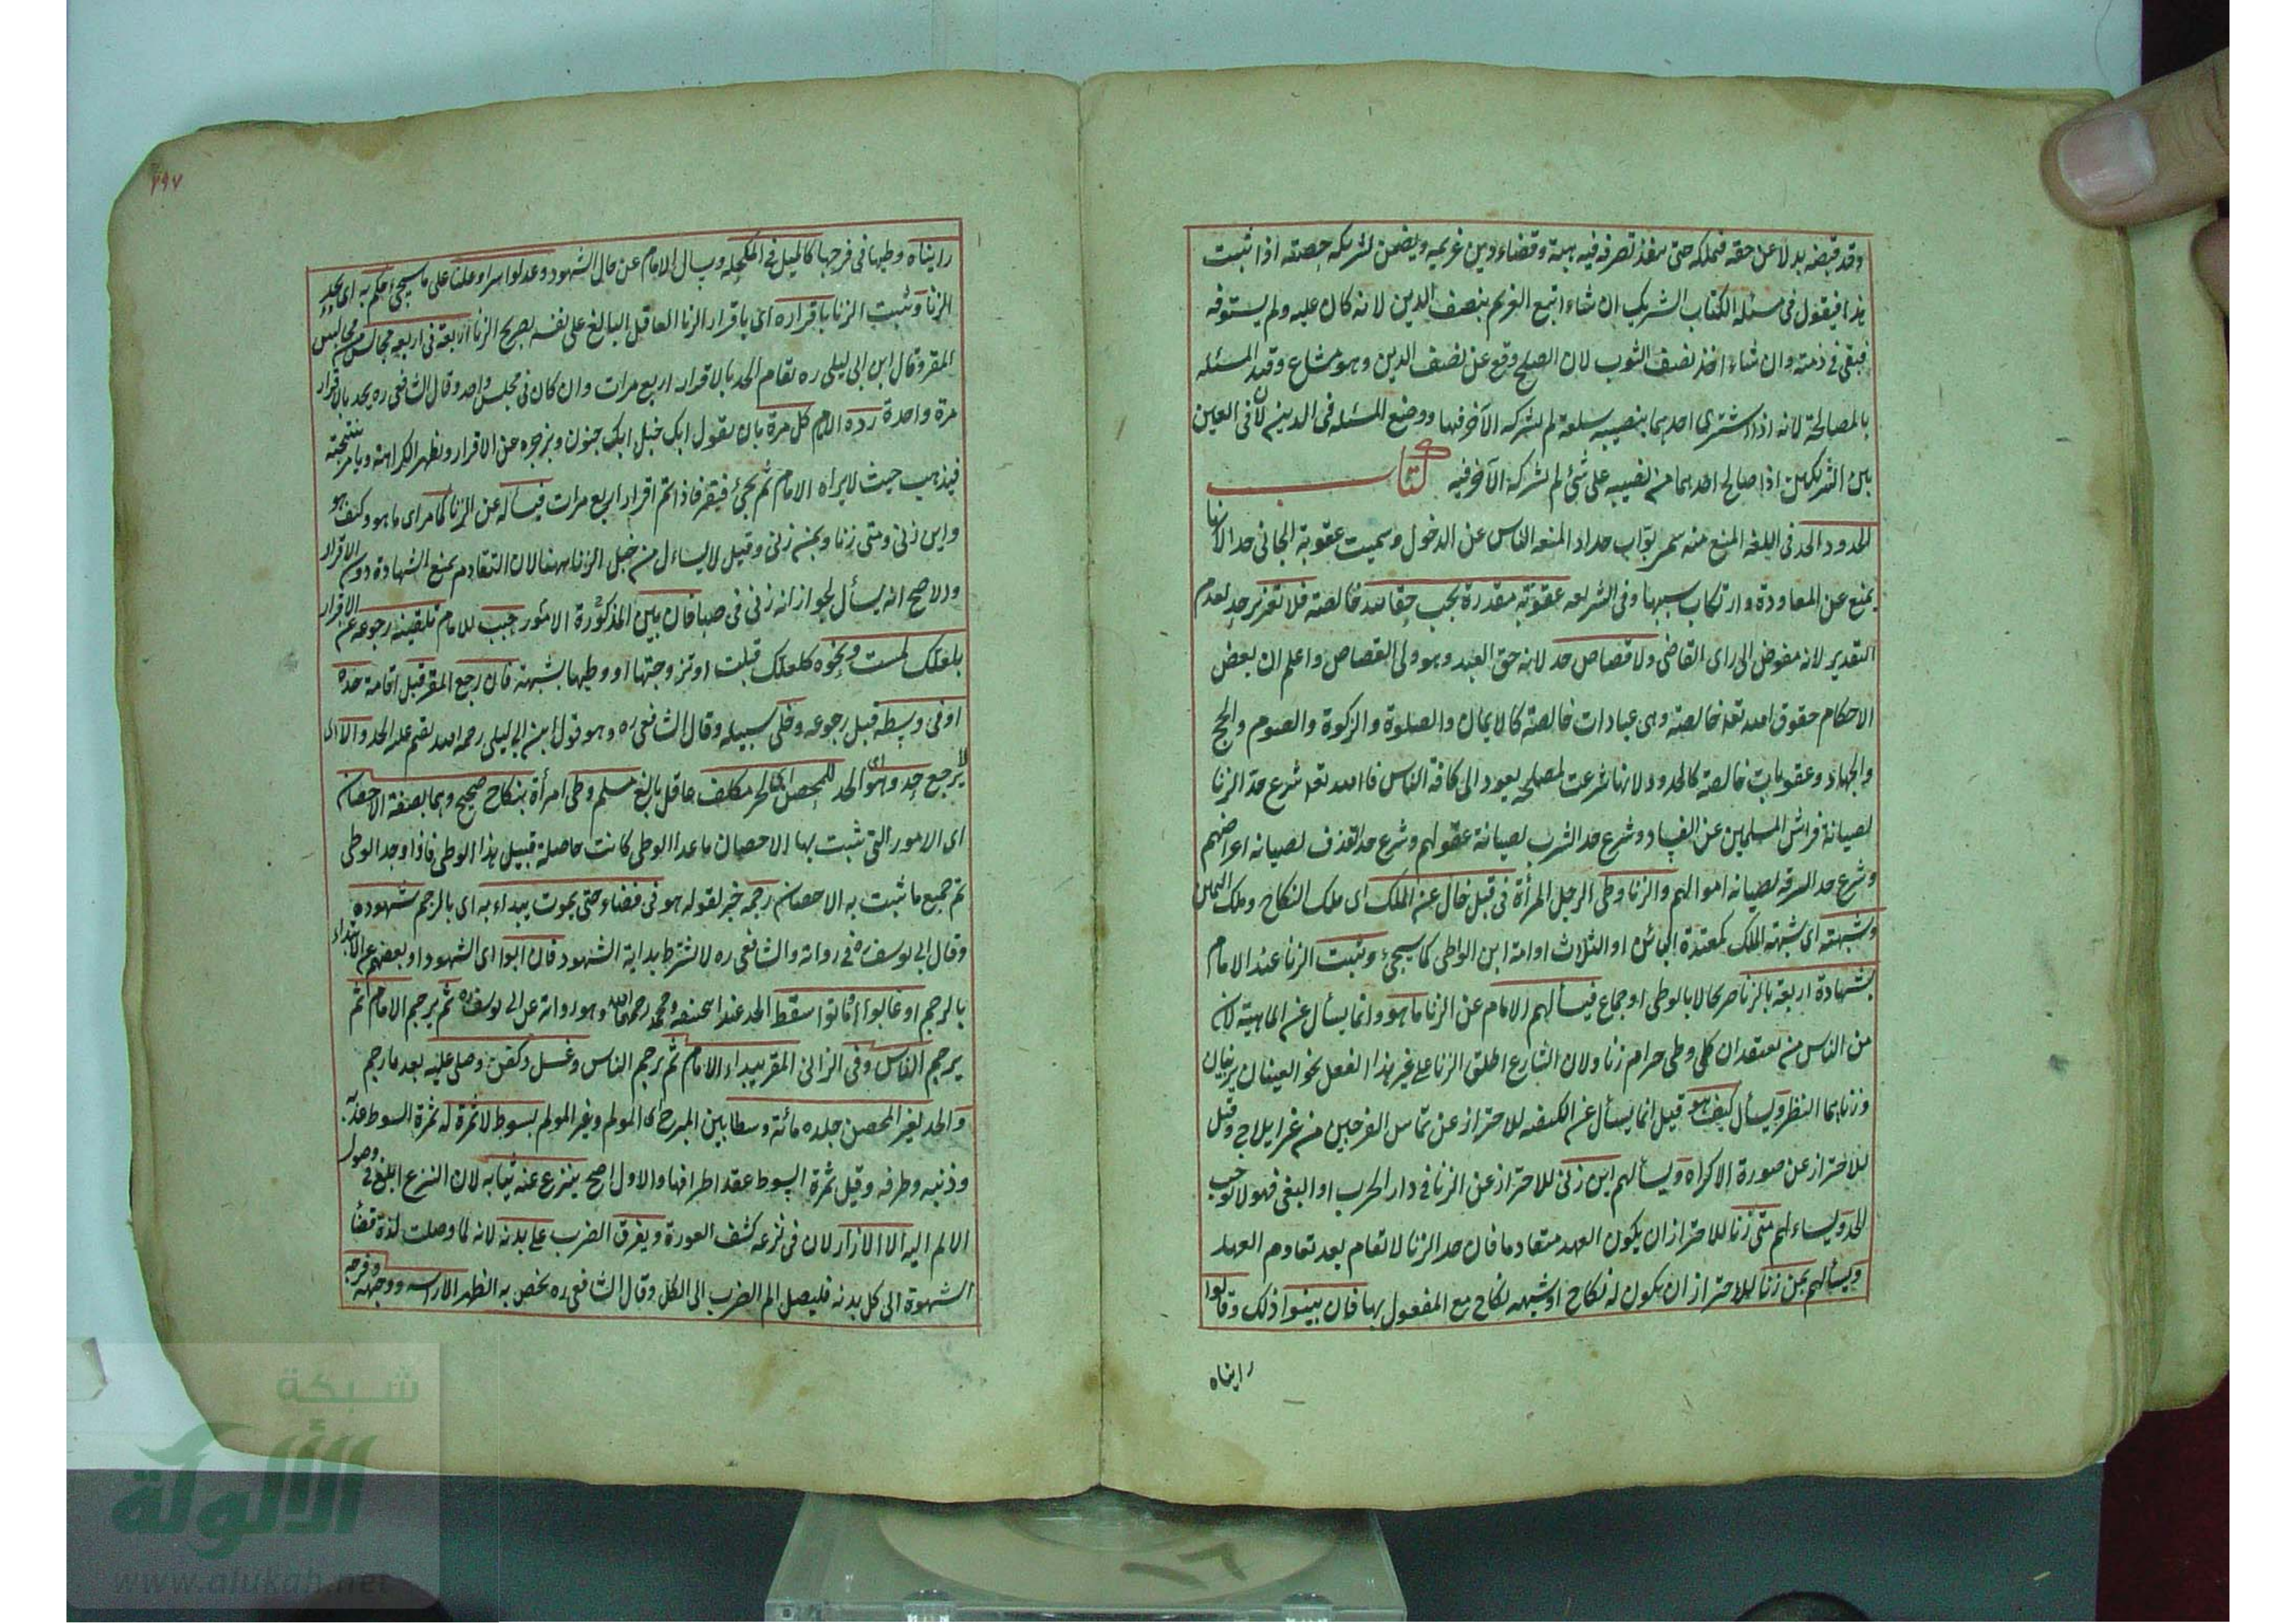 وقد قبضه بدلا عن حقه فيملكه حتى ينفذ تصرفه فيه هبة وقضاء دين غريمه ويضمن لشريكه حصته اذا ثبت
هذا فيقول فى مسئلة الكتاب الشريك ان شاء اتبع الغريم بنصف الدين لانه كان عليه ولم يستوفه
فبقى فى ذمته وان شاء اخذ نصف الثوب لان الصلح وقع عن نصف الدين وهو مشاع وقيد المسئله
بالمصالحة لانه اذا اشترى احدهما بنصيبه سلعة لم يشركه الآخر فيها ووضع المسئله فى الدين لان فى العين
بين الشريكين اذا صالح احدهما من نصيبه على شئ لم يشركه الآخر فيه كتاب
الحدود الحد فى اللغة المنع منه سمى بواب حدادا لمنعه الناس عن الدخول وسميت عقوبة الجانى حدا لانها
يمنع عن المعاودة وارتكاب سببها وفى الشريعه عقوبة مقدرة يجب حقا لله خالصة فلا تعزير حد لعدم
التقدير لانه مفوض الى راى القاضى ولا قصاص حد لانه حق العبد وهو ولى القصاص واعلم ان بعض
الاحكام حقوق الله تعا خالصة وهى عبادات خالصة كالايمان والصلوة والزكوة والصوم والحج
والجهاد وعقوبات خالصة كالحدود لانها شرعت لمصلحه يعود الى كافة الناس فالله تعا شرع حد الزنا
لصيانة فراش المسلمين عن الفساد وشرع حد الشرب لصيانة عقولهم وشرع حد القذف لصيانه اعراضهم
وشرع حد السرقه لصيانه اموالهم والزنا وطى الرجل المرأة فى قبل خال عن الملك اى ملك النكاح وملك اليمين
وشبهته اى شبهة الملك كمعتدة البائن او الثلاث او امة ابن الواطى كما سيجئ ويثبت الزنا عند الامام
بشهادة اربعة بالزنا صريحا لا بالوطى او جماع فيسألهم الامام عن الزنا ما هو وانما يسأل عن الماهية لان
من الناس من يعتقد ان كل وطى حرام زنا ولان الشارع اطلق الزنا على غير هذا الفعل نحو العينان يزنيان
وزناهما النظر ويسأل كيف هو قيل انما يسأل عن الكيفيه للاحتراز عن تماس الفرجين من غير ايلاج وقيل
للاحتراز عن صورة الاكراه ويسألهم اين زنى للاحتراز عن الزنا فى دار الحرب او البغى فهو لا يوجب
الحد ويساءلهم متى زنا للاحتراز ان يكون العهد متقادما فان حد الزنا لا تقام بعد تقادم العهد
ويسألهم بمن زنا للاحتراز ان يكون له نكاح او شبهه نكاح مع المفعول بها فان بينوا ذلك وقالوا
رايناه
٢٩٧
رايناه وطيها فى فرجها كالميل فى المكحله ويسال الامام عن حال الشهود وعدلوا سرا وعلنا على ما سيجئ حكم به اى بحد
الزنا ويثبت الزنا باقراره اى باقرار الزنا العاقل البالغ على نفسه بصريح الزنا اربعة فى اربعه مجالس من مجالس
المقر وقال ابن ابى ليلى ره تقام الحد بالاقرار اربع مرات وان كان فى مجلس واحد وقال الشافعى ره يحد بالاقرار
مرة واحدة رده الامام كل مرة بان يقول ابك خبل ابك جنون ويزجره عن الاقرار ويظهر الكراهة ويامر بتنحيته
فيذهب حيث لايراه الامام ثم يجئ فيقر فاذا تم اقرار اربع مرات فيسأله عن الزنا كما مر اى ما هو وكيف هو
واين زنى ومتى زنا وبمن زنى وقيل لا يساءل من قبل الزنا ههنا لان التقادم يمنع الشهادة دون الاقرار
والاصح انه يسأل لجواز انه زنى فى صبا فان بين المذكورة الامور حبب للامام تلقينه رجوعه عن الاقرار
بلعلك لمست ونحوه كلعلك قبلت او تزوجتها او وطيها بشبهة فان رجع المقر قبل اقامة حده
او فى وسطه قبل رجوعه وخلى سبيله وقال الشافعى ره وهو قول ابن ابى ليلى رحمه الله يقيم عليه الحد والا اى
لا يرجع حد وهو اى الحد للمحصن اى لحر مكلف عاقل بالغ مسلم وطى امرأة بنكاح صحيح وهما بصفة الاحصان
اى الامور التى ثبت بها الاحصان ما عدا الوطى كانت حاصلة قبيل هذا الوطى فاذا وجد الوطى
تم جميع ما ثبت به الاحصان رجمه خبر لقوله هو فى فضاء حتى يموت يبداء به اى بالرجم شهوده
وقال ابى يوسف ره فى رواية والشافعى ره لا يشترط بداية الشهود فان ابوا اى الشهود او بعضهم عن الابتداء
بالرجم او غابوا او ماتوا سقط الحد عند ابى حنيفه ومحمد رحمهما الله وهو رواية عن ابى يوسف ره ثم يرجم الامام ثم
يرجم الناس وفى الزانى المقر يبداء الامام ثم يرجم الناس وغسل وكفن وصلى عليه بعد ما رجم
والحد لغير المحصن جلده مائة وسطا بين المبرح اى المولم وغير المولم بسوط لا ثمرة له ثمرة السوط عذبه
وذنبه وطرفه وقيل ثمرة السوط عقد اطرافها والاول اصح ينزع عنه ثيابه لان النزع ابلغ فى وصول
الالم اليه الا الازار لان فى نزعه كشف العورة ويفرق الضرب على بدنه لانه لما وصلت لذة قضأ
الشهوة الى كل بدنه فليصل الم الضرب الى الكل وقال الشافعى ره يخص به الظهر الا راسه ووجهه وفرجه
شبكة
الألوكة
www.alukah.net